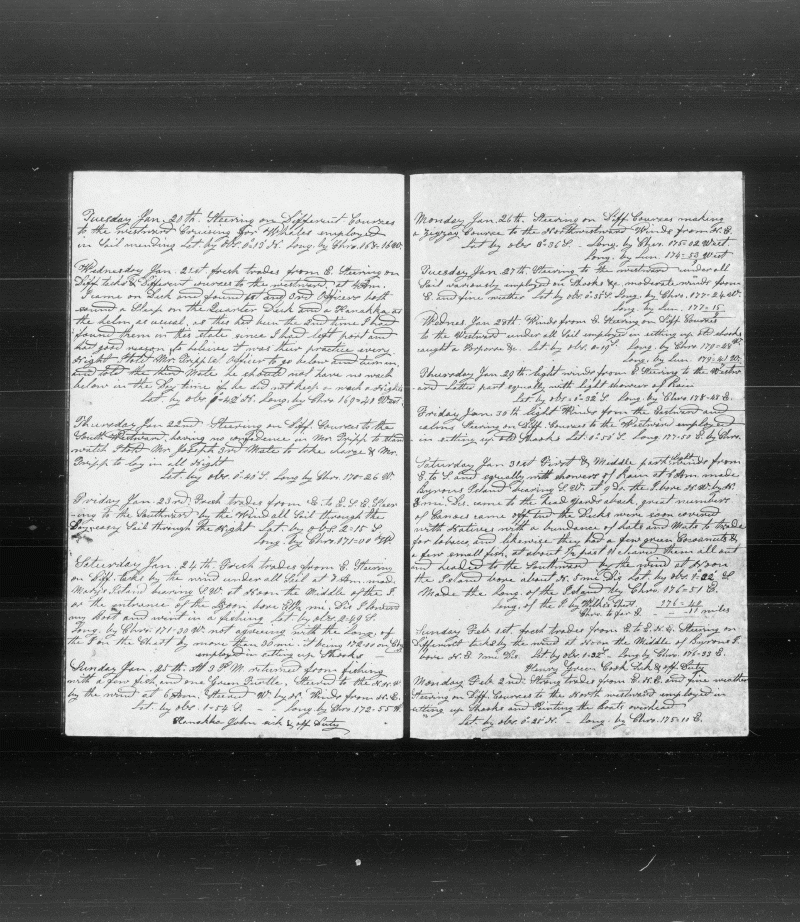 Tuesday Jan. 20th. Steering on Different Courses
to the westward Cruising for Whales employed
in Sail mending Lat by obs 0°13 N. Long. by Chro. 168°16 W.
Wednesday Jan. 21st fresh trades from E. Steering on
Diff tacks & Different courses to the westward, at 4 Am.
I came on Deck and found 1st and 3rd Officers both
sound a Sleep on the Quarter Deck and a Kanakka at
the helm as useual, as this had been the 2nd time I had
found them in this state since I had left port and
had good reason to believe it was their practice every
Night I told Mr. Tripp 1st Officer to go below and turn in,
and told the third Mate he should not have no wach
below in the Day time if he did not keep a wach a Nights
Lat. by obs 0°42 N. Long. by Chro 169°48 West
Thursday Jan 22nd Steering on Diff Courses to the
South Westward, having no confidence in Mr. Tripp to
watch I told Mr Joseph 3rd Mate to take charge & Mr.
Tripp to lay in all Night
Lat. by obs 0°45 S. Long by Chro 170°26 W.
Friday Jan 23rd fresh trades from E to E. S. E. Steer-
ing to the Southward by the Wind all Sail through the
Day easy Sail through the Night Lat. by obs. 2°15 S.
Long. by Chro. 171°00 W
Saturday Jan. 24th. Fresh trades from E. Steering
on Diff. tacks by the wind under all Sail at 7 Am. made
Marys Island bearing S.W. at Noon the Middle of the I.
or the entrance of the Lagoon bore E 1/2 mi. Dis I lowered
my Boat and went in a fishing Lat by obs. 2°49 S.
Long. by Chro. 171°30 W. not agreeing with the Long. of
the I on the Chart by more than 30 mi. it being 172°00 on
employed in setting up Shooks
Sunday Jan. 25th At 3 P.M. returned from fishing
with a few fish, and one Green Turtle, Steered to the N.N.W
by the wind at 6 Am. Steered W. by N. Winds from N. E.
Lat. by obs. 1°54 S. - Long. by Chro. 172°55 W.
Kanakka John sick & off Duty
Monday Jan. 26th. Steering on Diff Courses making
a Zigzag Course to the Northwestward Winds from N. E.
Lat by obs 0°36 S. - Long. by Chro. 175°02 West
Long. by Lun. 174°53 West
Tuesday Jan. 27th Steering to the westward under all
Sail variously employed on Shooks &c. moderate winds from
E. and fine wether Lat by obs. 0°35 S. Long. by Chro. 177°24 W.
Long by Lun. 177°15
Wednes. Jan 28th. Winds from E. Steering on Diff Courses
to the Westward under all Sail employed in setting up old shooks
caught a Porpois &c. Lat by obs. 0°19 S. Long by Chro 179°48 W
Long. by Lun. 179°41 W.
Thursday Jan 29th light winds from E Steering to the Westw
and Latter part squally with light showers of Rain
Lat by obs 0°32 S. Long by Chro. 178°48 E.
Friday Jan. 30th light Winds from the Eastward and
calms Steering on Diff. Courses to the Westward employed
in setting up old Shooks Lat. 0°55 S. Long 177°50 E. by Chro.
Saturday Jan 31st First & Middle part light winds from
E to S. and squally with showers of Rain at 6 Am. made
Byrons Island bearing S.W. at 9 Am. the I. bore N.W. by N.
2 mi. Dis. came to the head yards aback, great numbers
of Canoes came off and the Decks were soon covered
with Natives with a bundance of hats and Mats to trade
for tobaco, and likewise they had a few green Cocoanuts &
a few small fish, at about 1/2 past 11 cleared them all out
and headed to the Southward by the wind at Noon
the Island bore about N. 5 mi Dis Lat. by obs. 1°22 S
Made the Long. of the Island by Chro. 176°51 E.
Long. of the I by Wilkes Chart 176°44
Chro. to far E. 11 miles
Sunday Feb 1st. fresh trades from E to E. N. E. Steering on
Different tacks by the wind at Noon the Middle of Byrons I.
bore N. E. 7 mi Dis. Lat by obs 1°32 S. Long by Chro. 176°33 E.
Henry Green Cook sick & off Duty
Monday Feb. 2nd. Strong trades from E. N. E. and fine weather
Steering on Diff. Courses to the North westward employed in
setting up Shooks and Painting the Boats overhead
Lat by obs. 0°25 N. - Long. by Chro. 175°11 E.